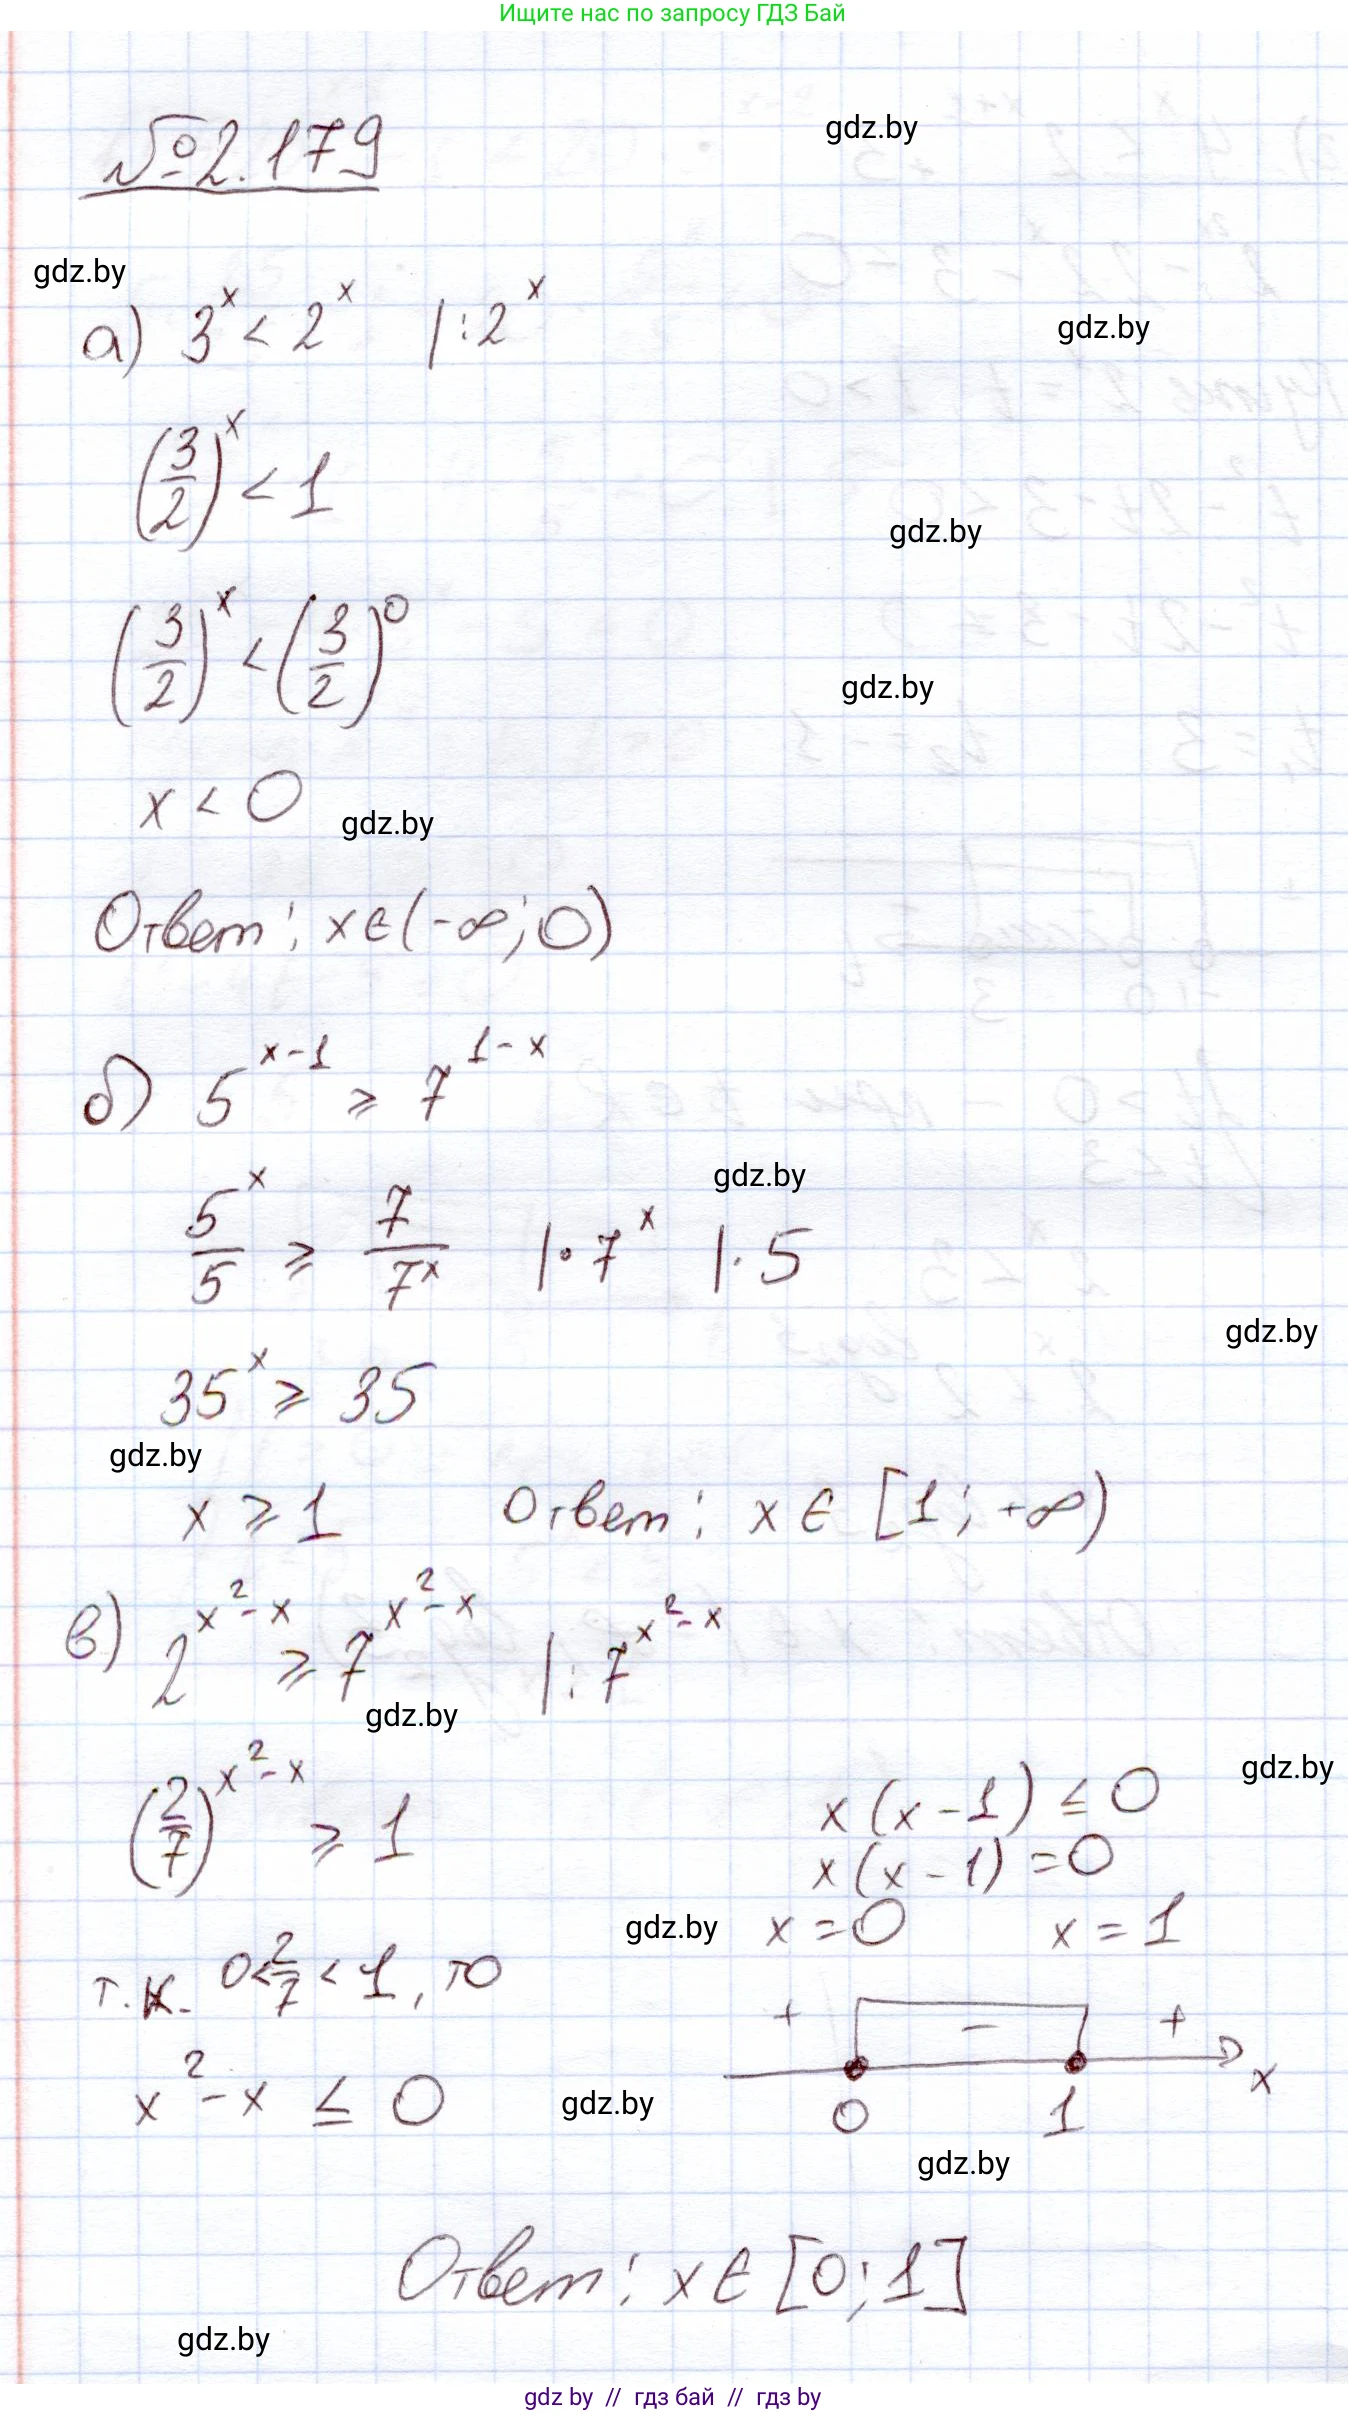 Ищите нас по запросу ГДЗ Бай
№2.179
gdz.by
gdz.by
а) 3^x < 2^x |:2^x
gdz.by
(3/2)^x < 1
gdz.by
(3/2)^x < (3/2)^0
gdz.by
x < 0
gdz.by
Ответ: x∈(-∞; 0)
б) 5^(x-1) ⩾ 7^(1-x)
gdz.by
5^x/5 ⩾ 7/7^x |·7^x |·5
gdz.by
35^x ⩾ 35
gdz.by
x ⩾ 1 Ответ: x ∈ [1; +∞)
в) 2^(x^2-x) ⩾ 7^(x^2-x) |:7^(x^2-x)
gdz.by
gdz.by
(2/7)^(x^2-x) ⩾ 1
т.к. 0<2/7<1, то
x^2-x ≤ 0
x(x-1) ≤ 0
x(x-1)=0
gdz.by
x=0 x=1
+ - +
0 1 x
gdz.by
gdz.by
Ответ: x∈[0;1]
gdz.by
gdz by // гдз бай // гдз by